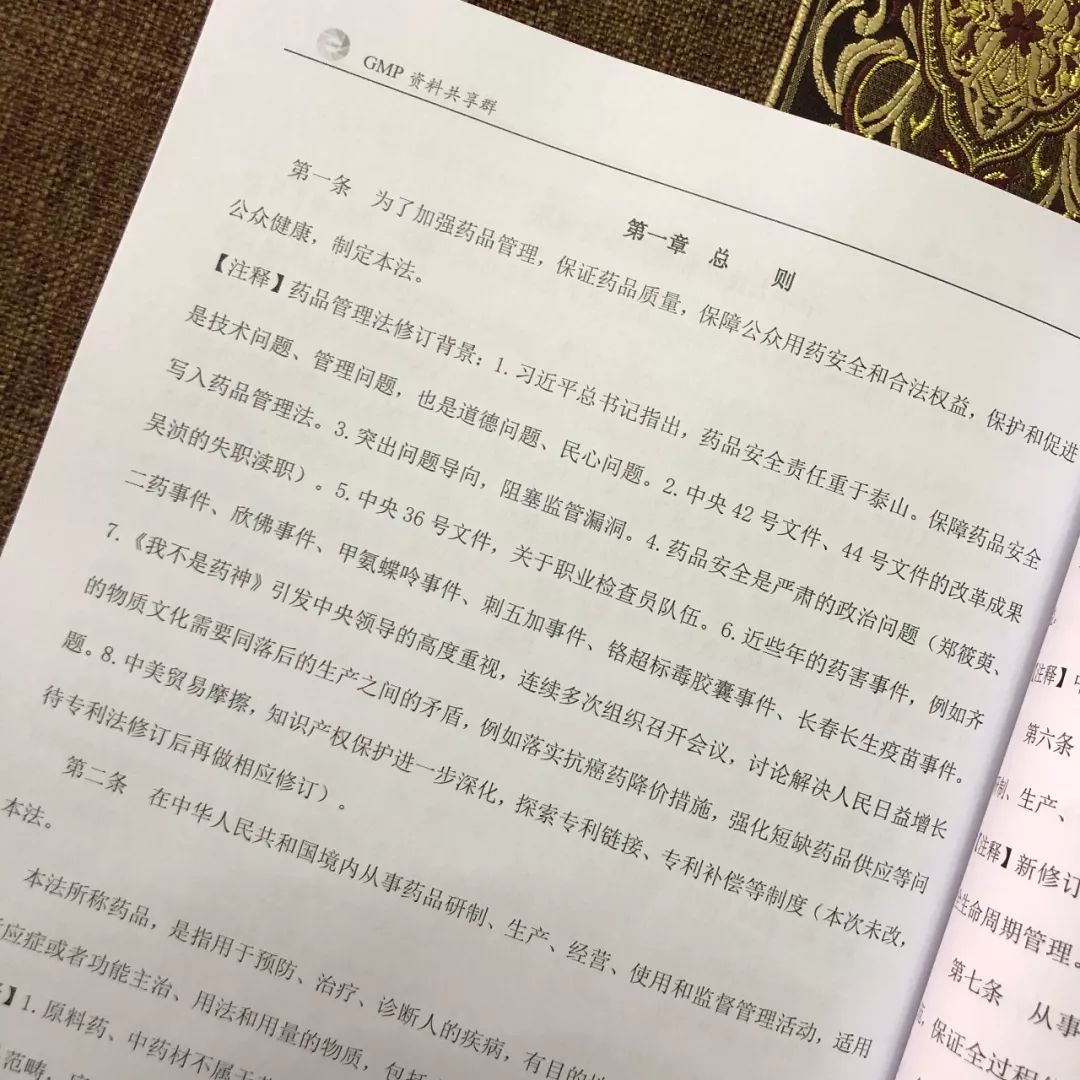 GMP 资料共享群
第一章 总 则
第一条 为了加强药品管理，保证药品质量，保障公众用药安全和合法权益，保护和促进
公众健康，制定本法。
【注释】药品管理法修订背景：1.习近平总书记指出，药品安全责任重于泰山。保障药品安全
是技术问题、管理问题，也是道德问题、民心问题。2.中央 42 号文件、44 号文件的改革成果
写入药品管理法。3.突出问题导向，阻塞监管漏洞。4.药品安全是严肃的政治问题（郑筱萸、
吴浈的失职渎职）。5.中央 36 号文件，关于职业检查员队伍。6.近些年的药害事件，例如齐
二药事件、欣佛事件、甲氨蝶呤事件、刺五加事件、铬超标毒胶囊事件、长春长生疫苗事件。
7.《我不是药神》引发中央领导的高度重视，连续多次组织召开会议，讨论解决人民日益增长
的物质文化需要同落后的生产之间的矛盾，例如落实抗癌药降价措施，强化短缺药品供应等问
题。8.中美贸易摩擦，知识产权保护进一步深化，探索专利链接、专利补偿等制度（本次未改，
待专利法修订后再做相应修订）。
第二条 在中华人民共和国境内从事药品研制、生产、经营、使用和监督管理活动，适用
本法。
本法所称药品，是指用于预防、治疗、诊断人的疾病，有目的地
应症或者功能主治、用法和用量的物质，包括
】1.原料药、中药材不属于
范畴，
【注释】
第六条
制、生产、
【注释】新修订
生命周期管理。
第七条 从事
，保证全过程